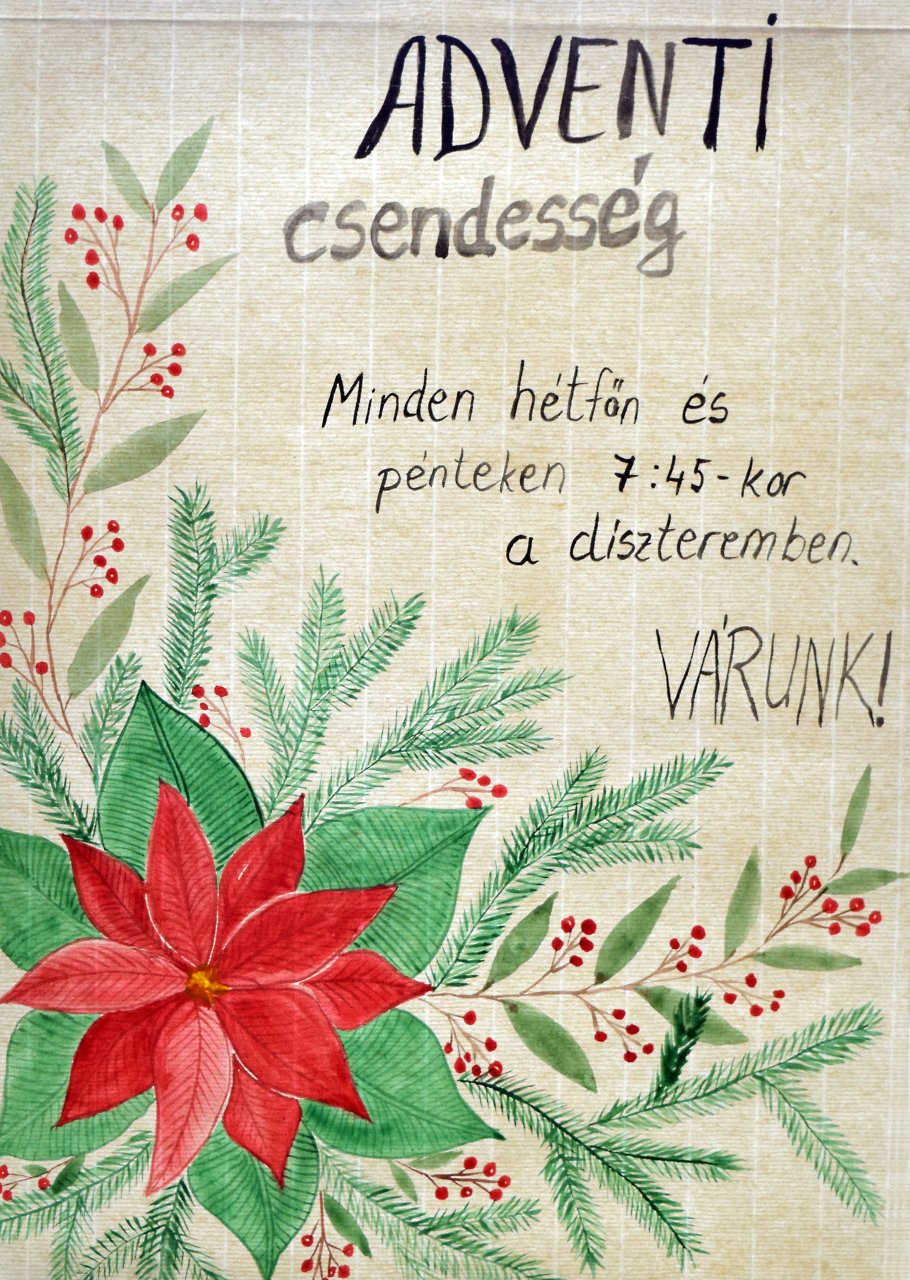 ADVENTI
csendesség
Minden hétfőn és
pénteken 7:45-kor
a díszteremben.
VÁRUNK!